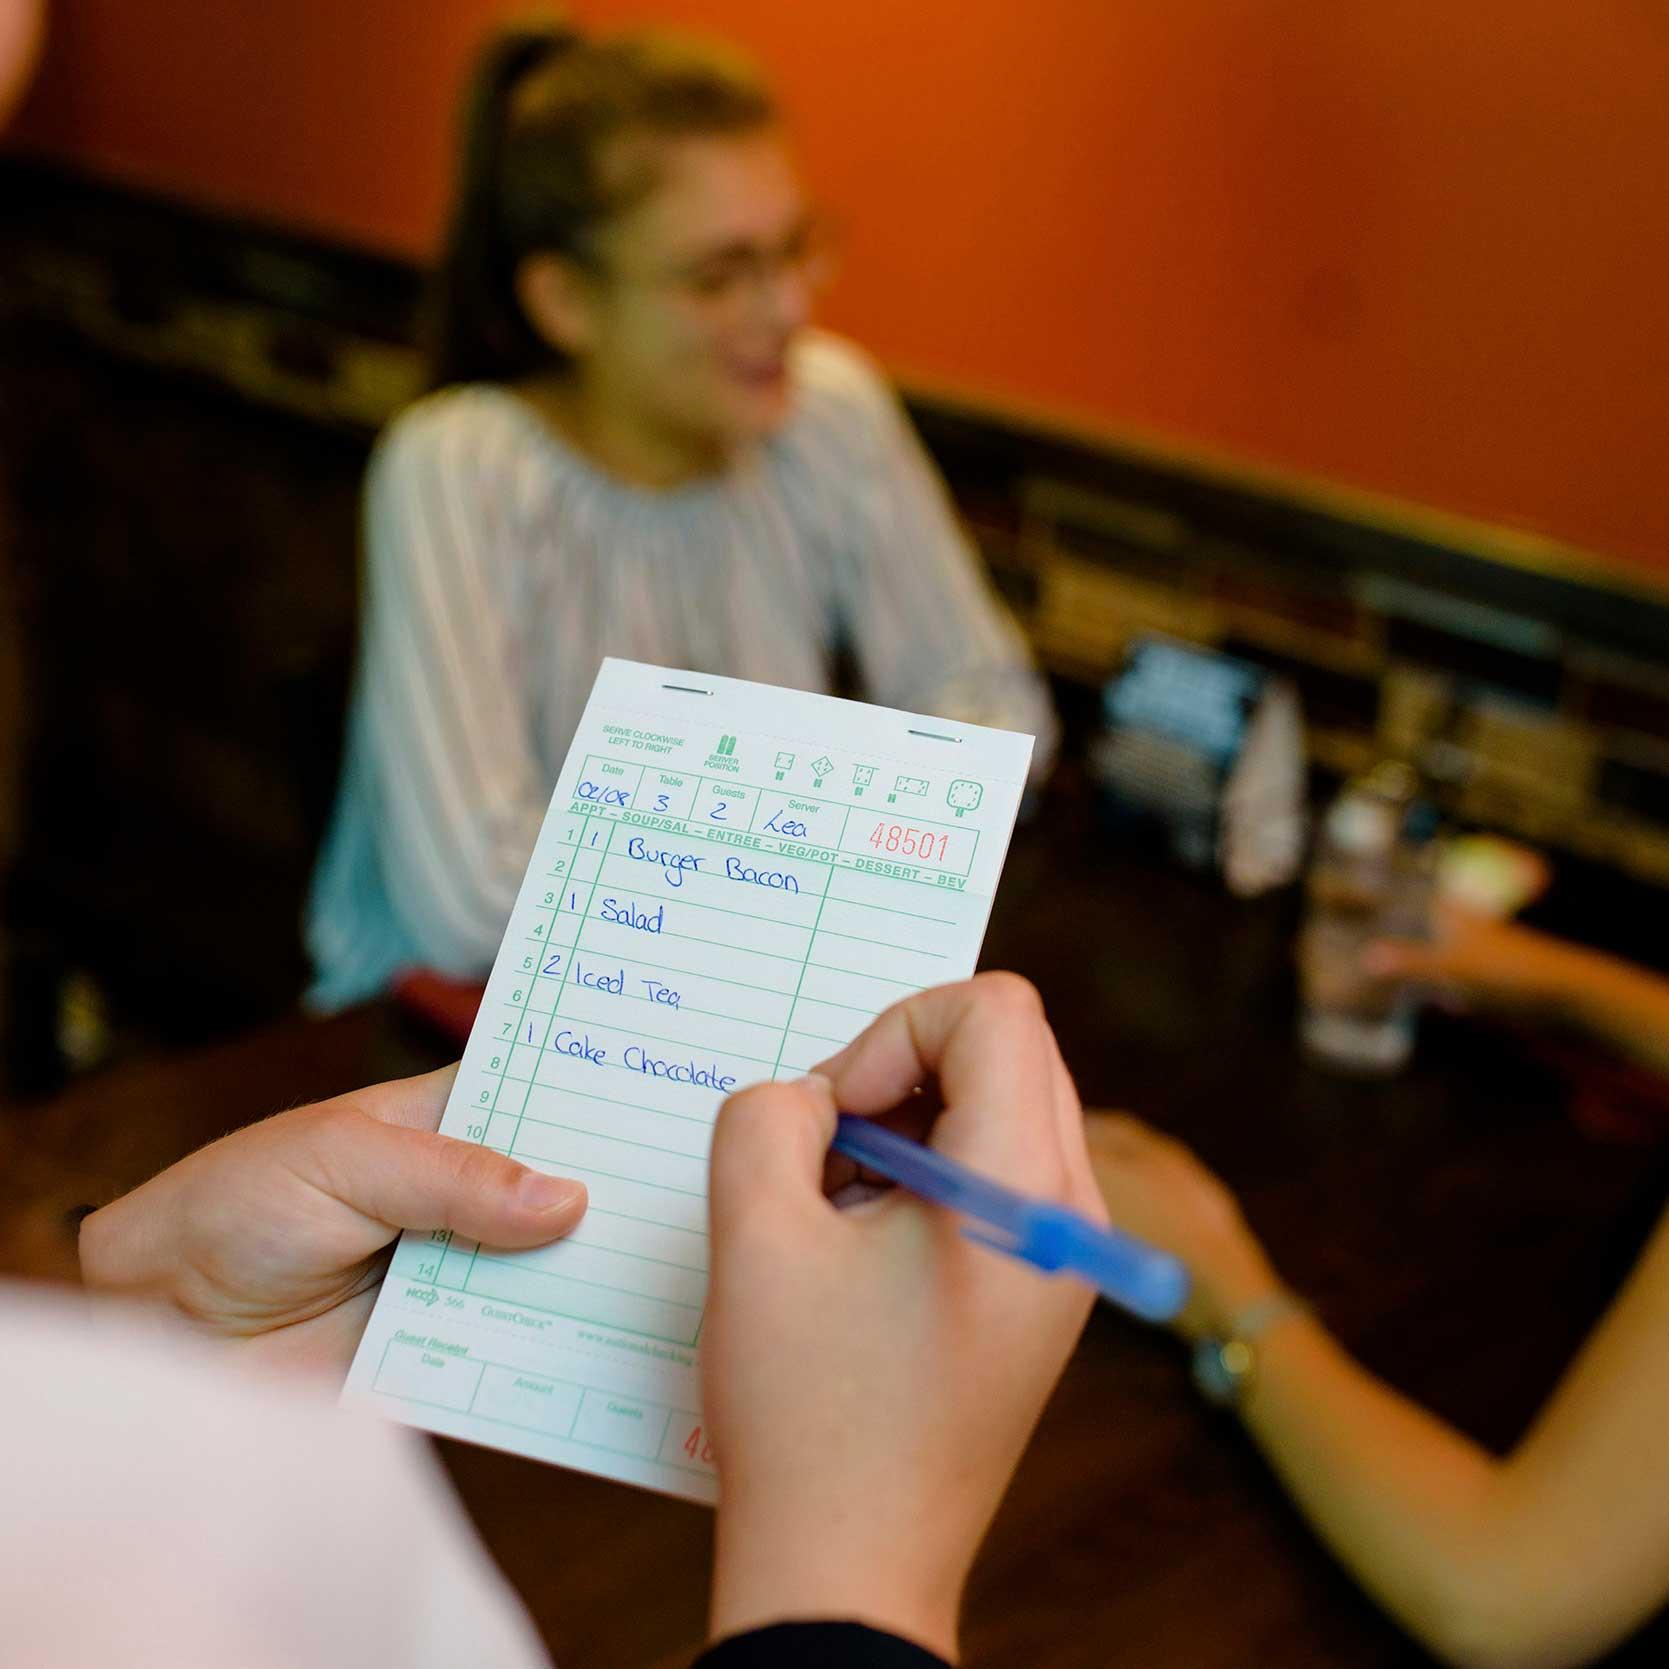 SERVE CLOCKWISE
LEFT TO RIGHT
SERVER
POSITION
Date Table Guests Server
02/08 3 2 Lea 48501
APPT – SOUP/SAL – ENTREE – VEG/POT – DESSERT – BEV
1 1 Burger Bacon
2
3 1 Salad
4
5 2 Iced Tea
6
7 1 Cake Chocolate
8
9
10
13
14
566 GUESTCHECK™
Guest Receipt
Date Amount Guests